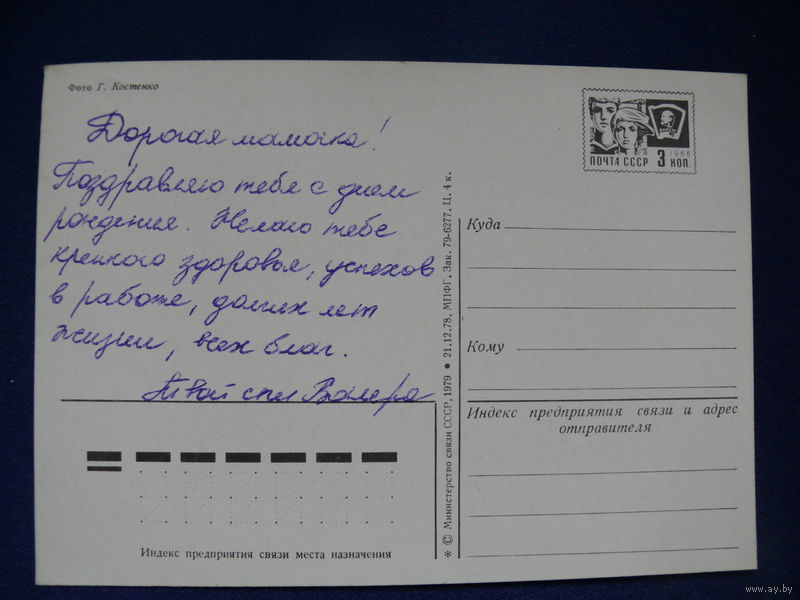 Фото Г. Костенко
Дорогая мамочка!
Поздравляю тебя с днем
рождения. Желаю тебе
крепкого здоровья, успехов
в работе, долгих лет
жизни, всех благ.
Твой сын Валера
Индекс предприятия связи места назначения
* © Министерство связи СССР, 1979 ● 21.12.78. МПФГ. Зак. 79-6277. Ц. 4 к.
1966
ПОЧТА СССР 3 КОП.
Куда
Кому
Индекс предприятия связи и адрес
отправителя
www.ay.by